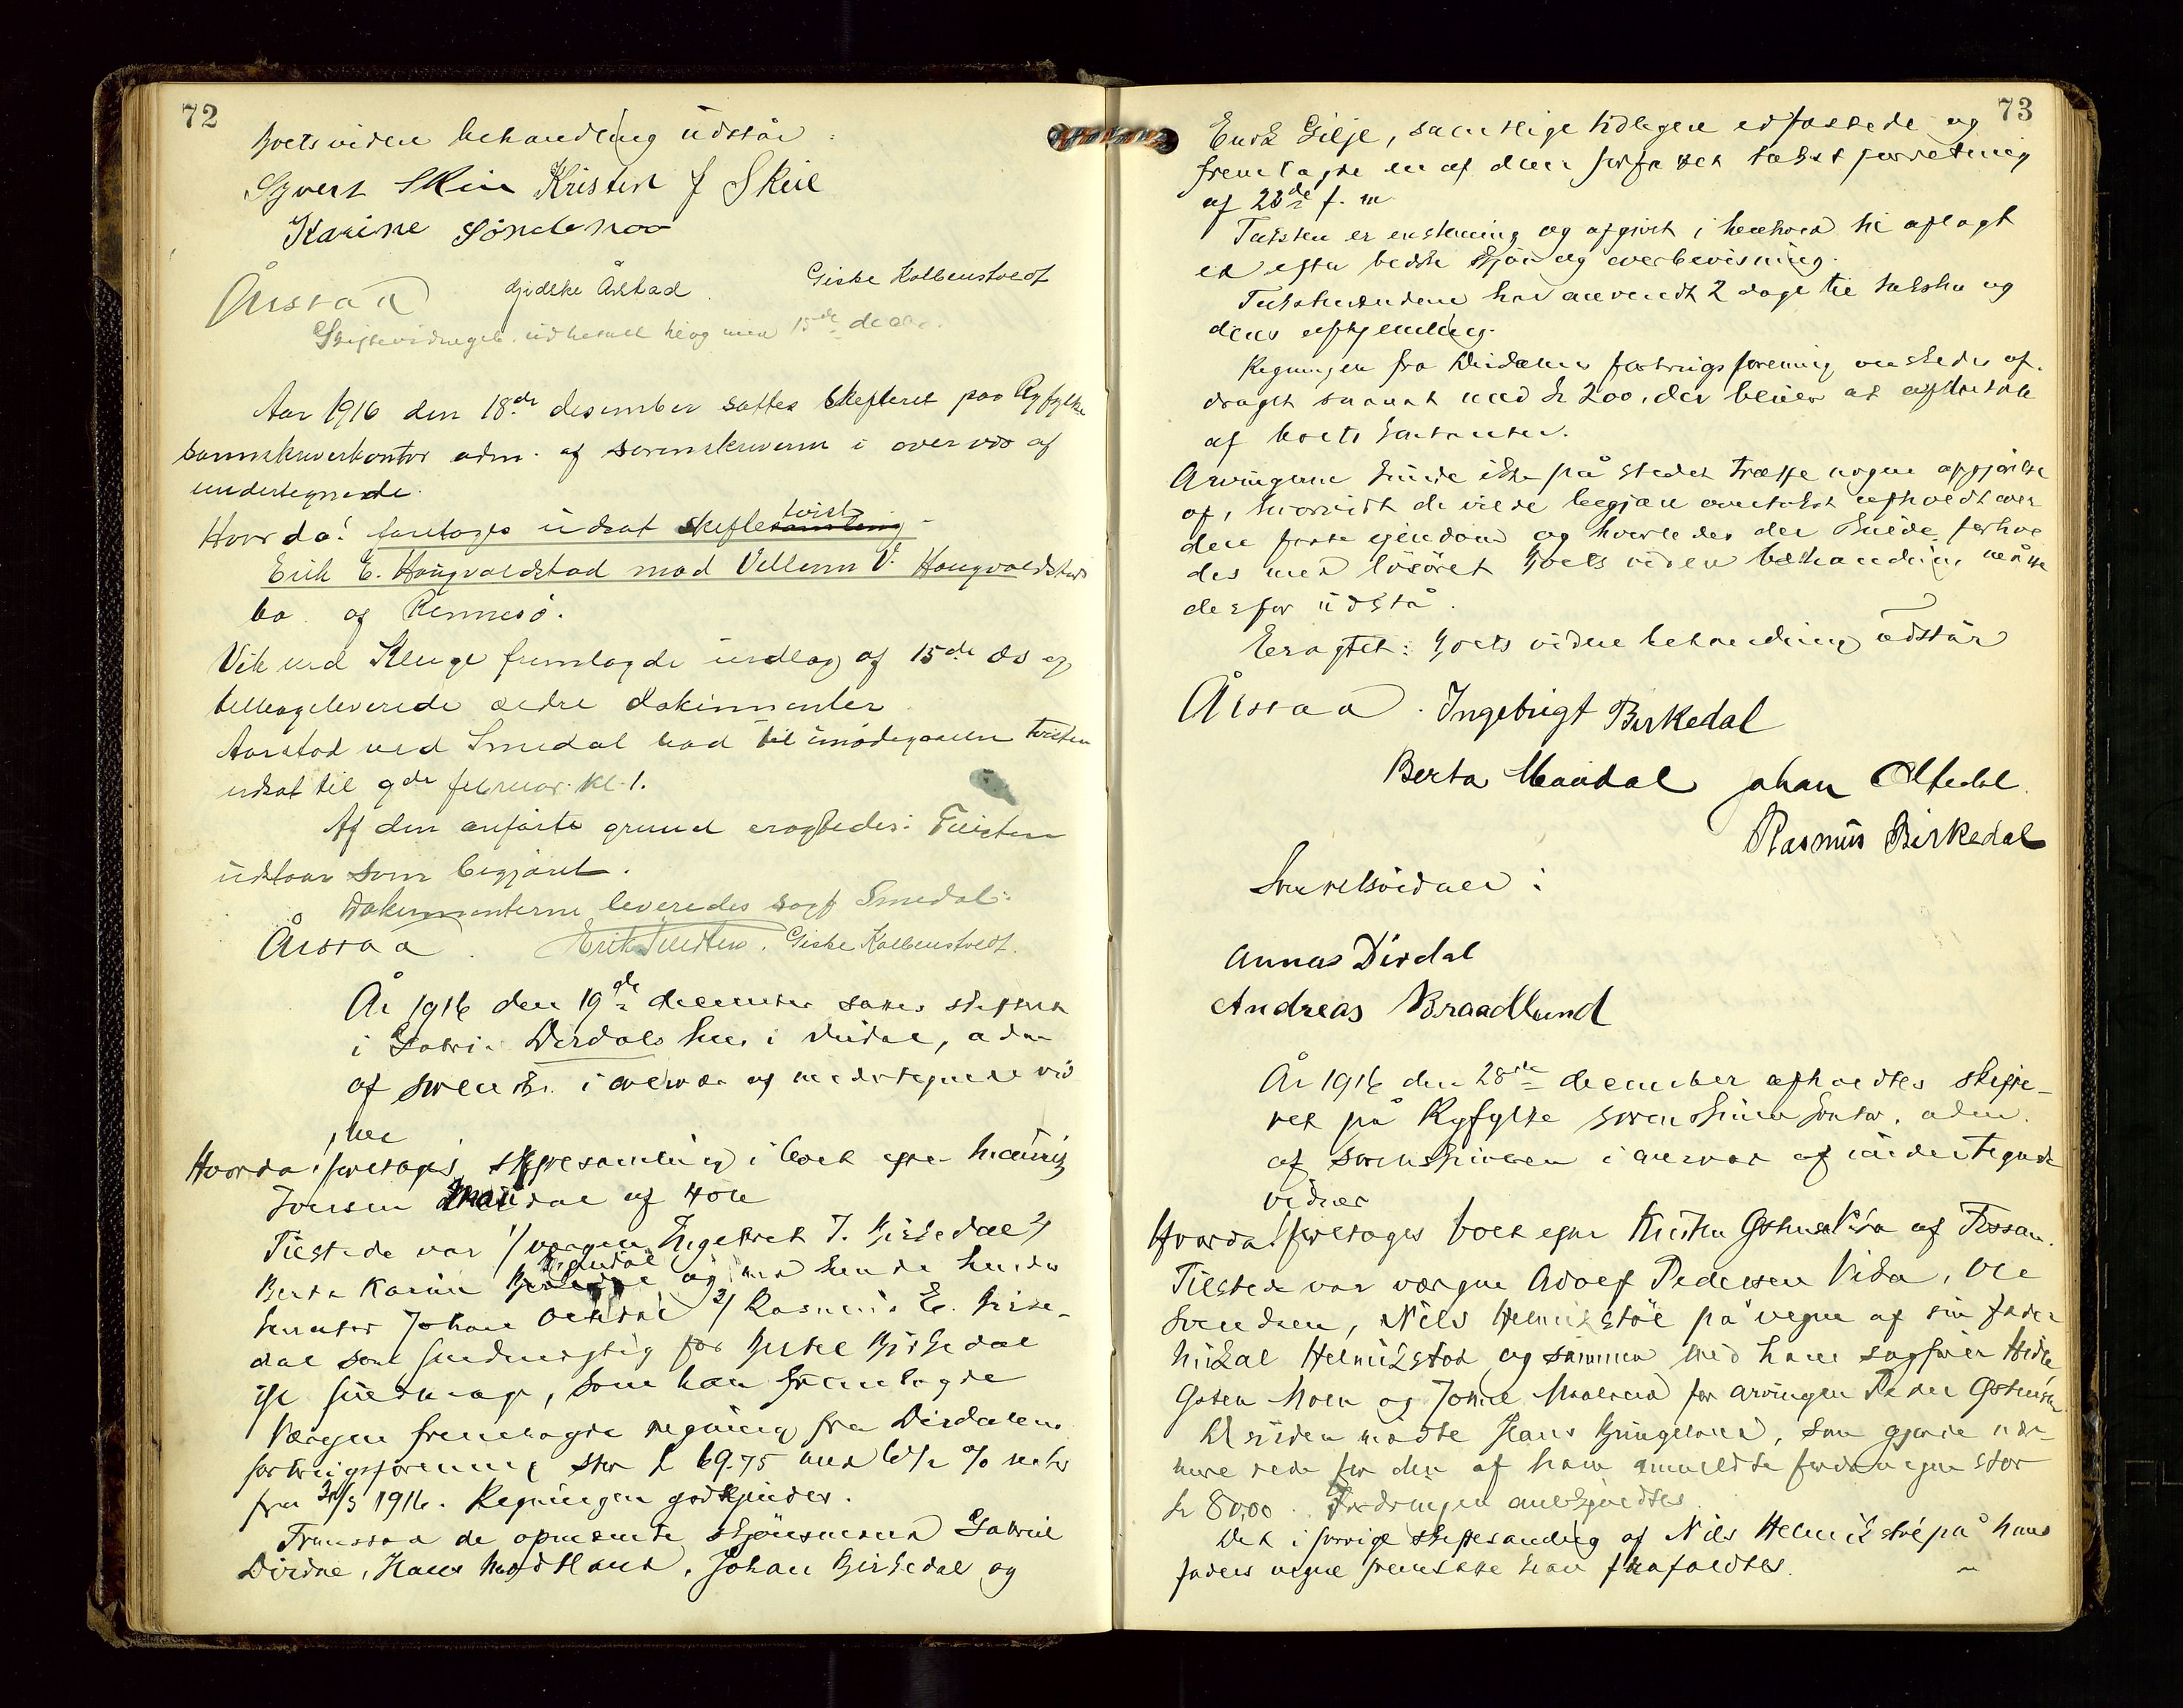 72
boets videre behandling udstår:
Syvert Skin Kristen J Skeie
Karine Söndenaa
Årstad Gjedske Årstad. Giske Kolbenstvedt
Skiftevidnegeb. udbetalt til og med 15de decbr.
Aar 1916 den 18de desember sattes skifteret paa Ryfylke
sorenskriverkontor adm. af sorenskriveren i overvær af
undertegnede.
Hvorda: foretoges udsat skifte tvist
Erik E. Haugvaldstad mod Vellemn V. Haugvaldstads
bo af Rennesö.
Vik ved Kluge fremlagde indlæg af 15de ds og
tilbageleverede ældre dokumenter
Aarstad ved Smedal bad til imødegaaelse tvisten
udsat til 9de februar kl. 1.
Af den anførte grund eragtedes: Tvisten
udstaar som begjært.
Dokumenterne leveredes sagf Smedal.
Årstad. Giske Kolbenstvedt.
År 1916 den 19de december sattes skifteret
i Gabriel Dirdals hus i Dirdal, adm
af sorenskr. i overvær af medundertegnede vid
ner
Hvorda: foretoges skiftesamling i boet efter Mauritz
Jonsen Maudal af 
Tilstede var 1/værgen Ingebret T. Birkedal 2/
Berta Karine Maudal og med hende hendes
kurator Johan Oltedal 3/ Rasmus E. Birke-
dal som fuldmægtig for Birkedal
ifl fuldmagt, som han fremlagde
Værgen fremlagde regning fra Dirdalens
forbrugsforening stor kr 69.75 med % renter
fra 31/3 1916. Regningen godkjendes.
Fremstod de opnævnte skjönsmænd Gabriel
Dirdal, Hans Madland, Johan Birkedal og
73
Enok Gilje, samtlige tidligere edfæstede og
fremlagde en af dem forfattet takst forretning
af 23de f. m.
Taksten er enstemmig og afgivet i henhold til aflagt
ed efter bedste skjön og overbevisning.
Takstmændene har anvendt 2 dage til taksten og
dens affjendling.
Regningen fra Dirdalens forbrugsforening önskedes af-
draget snarest med kr 200. der bliver at afbetale
af boets kontanter.
Arvingerne kunde ikke på stedet træffe nogen afgjörelse
af, hvorvidt de vilde begjære overtakst afholdt over
den faste eiendom og hvorledes der skulde forhol
des med lösöret. Boets videre behandling måtte
derfor udstå.
Eragtet: Boets videre behandling udstår
Årstad. Ingebrigt Birkedal
Berta Maudal Johan Oltedal.
Rasmus Birkedal
Som retsvidner:
Annas Dirdal
Andreas Braadlund
År 1916 den 28de december afholdtes skifte-
ret på Ryfylke sorenskriverkontor. adm.
af sorenskriveren i overvær af undertegnede
vidner
Hvorda: foretoges boet efter Kirsten Gstensen Vika af Fossan.
Tilstede var værgen Adolf Pedersen Vika, Ole
Svendsen, Nils Helmikstöl på vegne af sin fader
Mikal Helmikstöl og sammen med ham sagfører Hidle
Gsten Moen og Tomas Maeland for arvingen Peder Gstensen
Desuden mødte Hans Bringeland, som gjorde nær-
mere rede for den af ham anmeldte fordringen stor
kr 80,00. Fordringen anerkjendtes.
Det i forrige skiftesamling af Nils Helmikstöl på hans
faders vegne fremsatte krav frafaldtes.